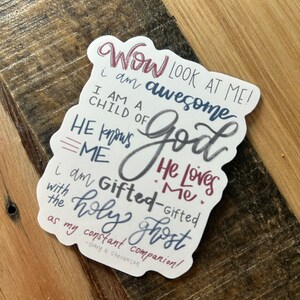 WOW LOOK AT ME!
i am awesome
I AM A
CHILD OF God
HE knows
ME
HE Loves
Me!
i am Gifted-Gifted
with the holy ghost
as my constant companion!